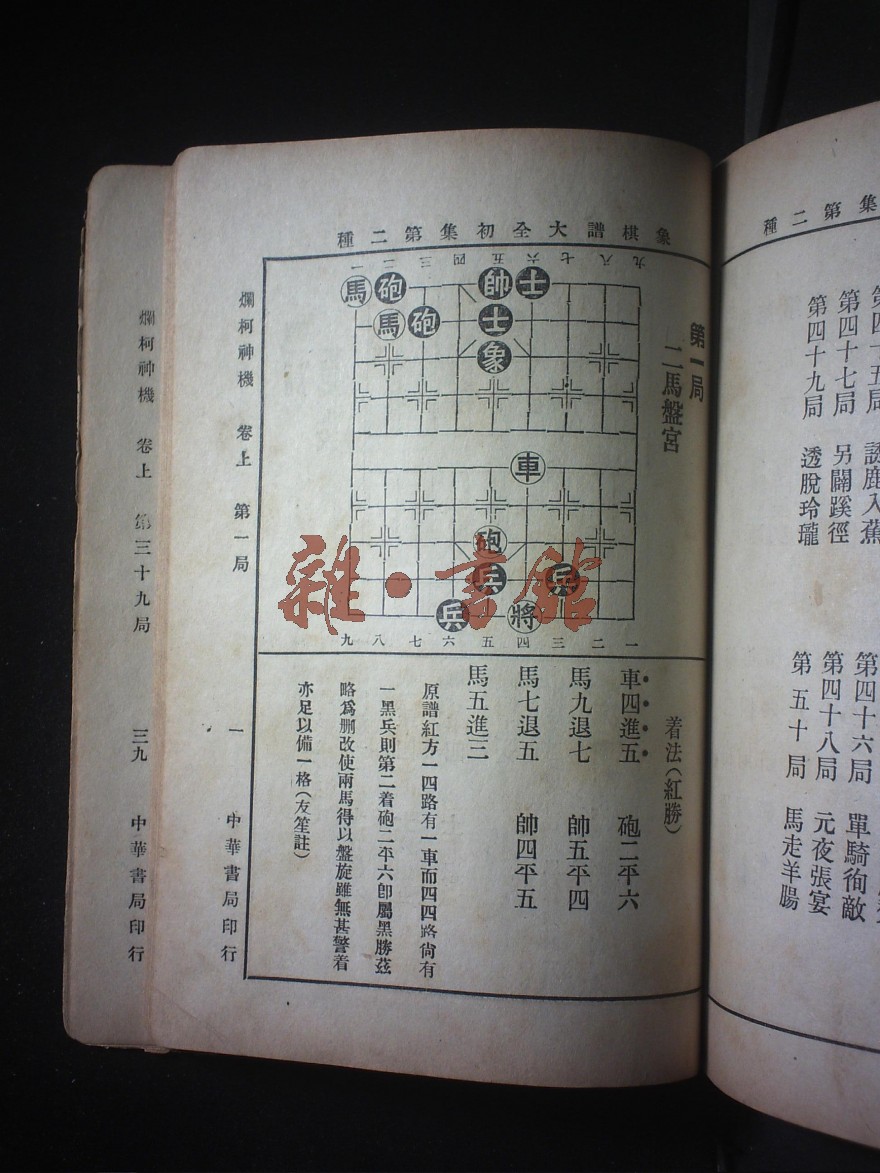 集第二種
第四十七局 另闢蹊徑
第四十九局 透脫玲瓏
第四十六局 單騎徇敵
第四十八局 元夜張宴
第五十局 馬走羊腸
象棋譜大全初集第二種
第一局
二馬盤宮
九八七六五四三二一
士帥砲馬
士砲馬
象
車
砲
兵兵
將兵
一二三四五六七八九
着法(紅勝)
車四進五 砲二平六
馬九退七 帥五平四
馬七退五 帥四平五
馬五進三
原譜紅方一四路有一車而四四路尙有
一黑兵則第二着砲二平六卽屬黑勝茲
略爲刪改使兩馬得以盤旋雖無甚警着
亦足以備一格(友笙註)
爛柯神機 卷上 第一局 一 中華書局印行
爛柯神機 卷上 第三十九局 三九 中華書局印行
雜·書館